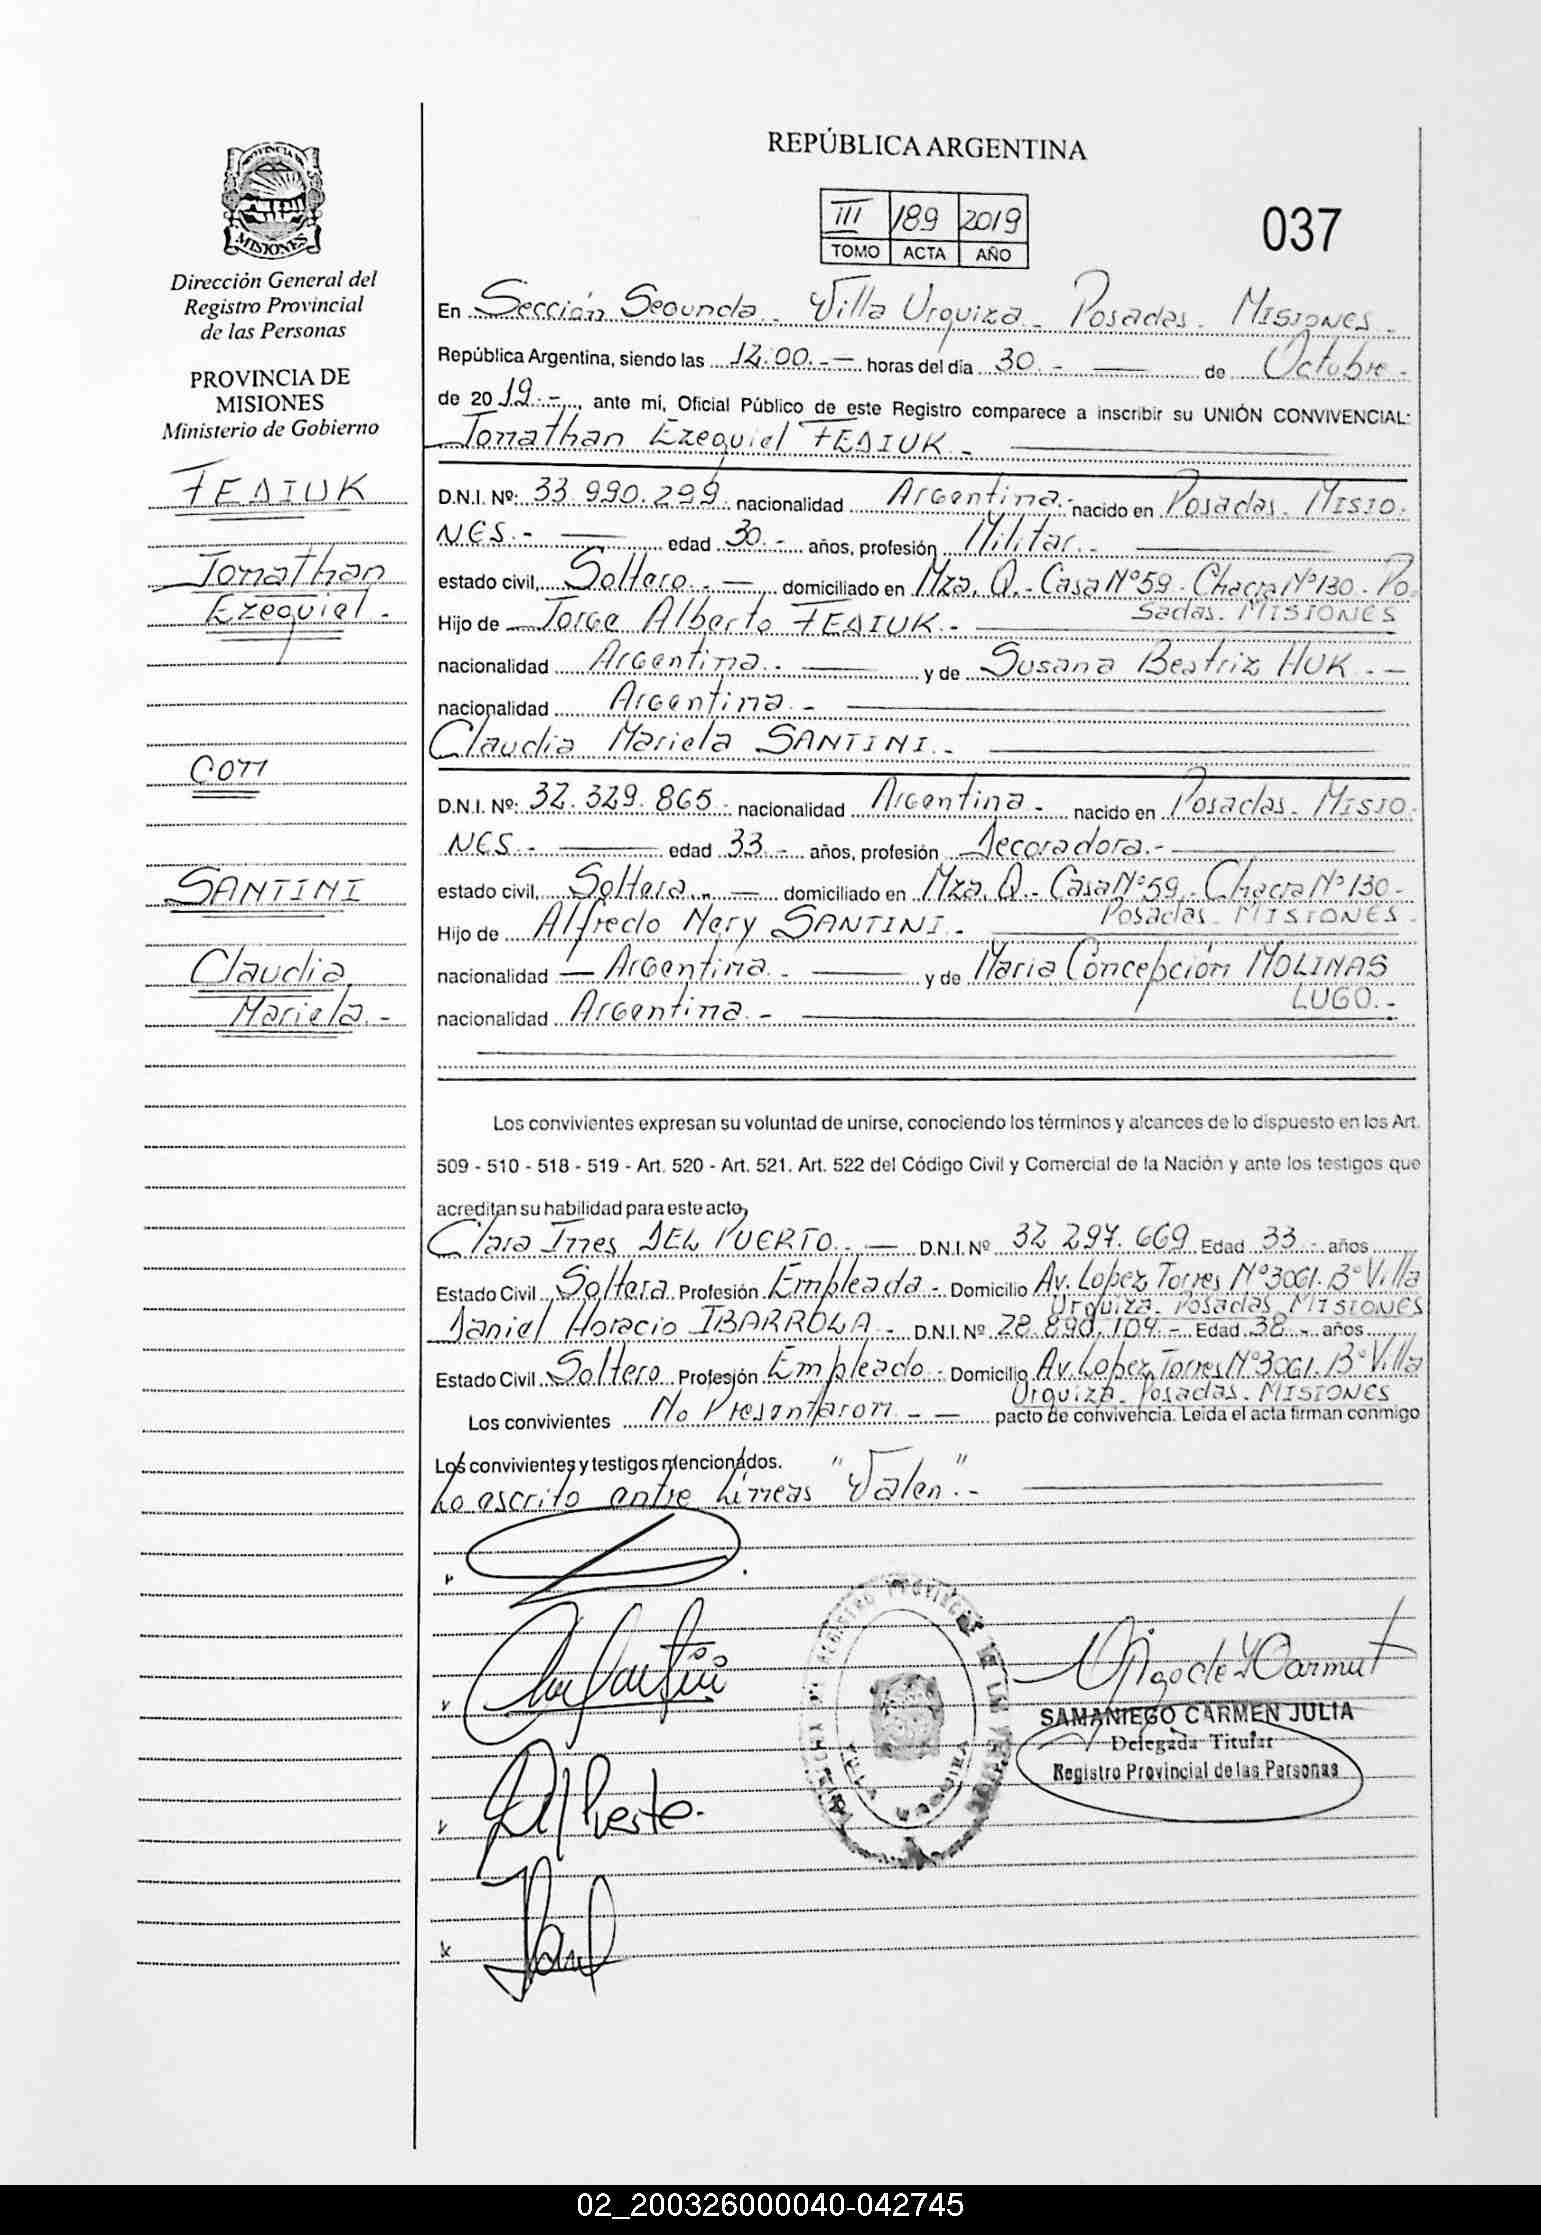 PROVINCIA DE
MISIONES
Dirección General del
Registro Provincial
de las Personas
PROVINCIA DE
MISIONES
Ministerio de Gobierno
FEDIUK
Jonathan
Ezequiel.-
con
SANTINI
Claudia
Mariela.-
REPÚBLICA ARGENTINA
III 189 2019
TOMO ACTA AÑO
037
En Sección Segunda- Villa Urquiza- Posadas- MISIONES-
República Argentina, siendo las 12:00.-— horas del día 30.- — de Octubre-
de 2019.-, ante mi, Oficial Público de este Registro comparece a inscribir su UNIÓN CONVIVENCIAL:
Jonathan Ezequiel FEDIUK.-
D.N.I. Nº: 33.990.299. nacionalidad Argentina.- nacido en Posadas- MISIO-
NES.- — edad 30.- años, profesión Militar.-
estado civil, Soltero.- — domiciliado en Mza. Q.- Casa Nº59- Chacra Nº130- Po
sadas- MISIONES
Hijo de Jorge Alberto FEDIUK.-
nacionalidad Argentina.- — y de Susana Beatriz HUK.-—
nacionalidad Argentina.-
Claudia Mariela SANTINI.-
D.N.I. Nº: 32.329.865.- nacionalidad Argentina.- nacido en Posadas- MISIO-
NES.- — edad 33.- años, profesión Decoradora.-
estado civil, Soltera.- — domiciliado en Mza. Q.- Casa Nº59- Chacra Nº130-
Posadas- MISIONES-
Hijo de Alfredo Nery SANTINI.-
nacionalidad — Argentina.- — y de Maria Concepción MOLINAS
LUGO.-
nacionalidad Argentina.-
Los convivientes expresan su voluntad de unirse, conociendo los términos y alcances de lo dispuesto en los Art.
509 - 510 - 518 - 519 - Art. 520 - Art. 521. Art. 522 del Código Civil y Comercial de la Nación y ante los testigos que
acreditan su habilidad para este acto,
Clara Ines DEL PUERTO.- — D.N.I. Nº 32.297.669 Edad 33.- años
Estado Civil Soltera Profesión Empleada- Domicilio Av. Lopez Torres Nº3061. Bº Villa
Urquiza- Posadas- MISIONES
Daniel Horacio IBARROLA- D.N.I. Nº 28.890.104.- Edad 38.- años
Estado Civil Soltero Profesión Empleado- Domicilio Av. Lopez Torres Nº3061. Bº Villa
Urquiza- Posadas- MISIONES
Los convivientes No Presentaron.- — pacto de convivencia. Leida el acta firman conmigo
Los convivientes y testigos mencionados.
Lo escrito entre Líneas "Valen".-
SAMANIEGO CARMEN JULIA
Delegada Titular
Registro Provincial de las Personas
02_200326000040-042745